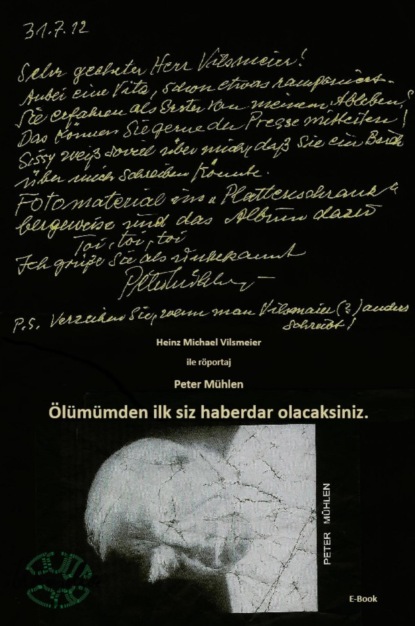 31.7.12
Sehr geehrter Herr Vilsmeier!
Anbei eine Vita, schon etwas ramponiert.
Sie erfahren als Erster von meinem Ableben,
Das können Sie gerne der Presse mitteilen!
Sissy weiß soviel über mich, daß Sie ein Buch
über mich schreiben könnte.
Fotomaterial ins "Plattenschrank"
bergeweise und das Album dazu
Toi, toi, toi
Ich grüße Sie als unbekannt
Peter Mühlen
P.S. Verzeihen Sie, wenn man Vilsmaier (?) anders
schreibt!
Heinz Michael Vilsmeier
ile röportaj
Peter Mühlen
Ölümümden ilk siz haberdar olacaksiniz.
PETER MÜHLEN
E-Book